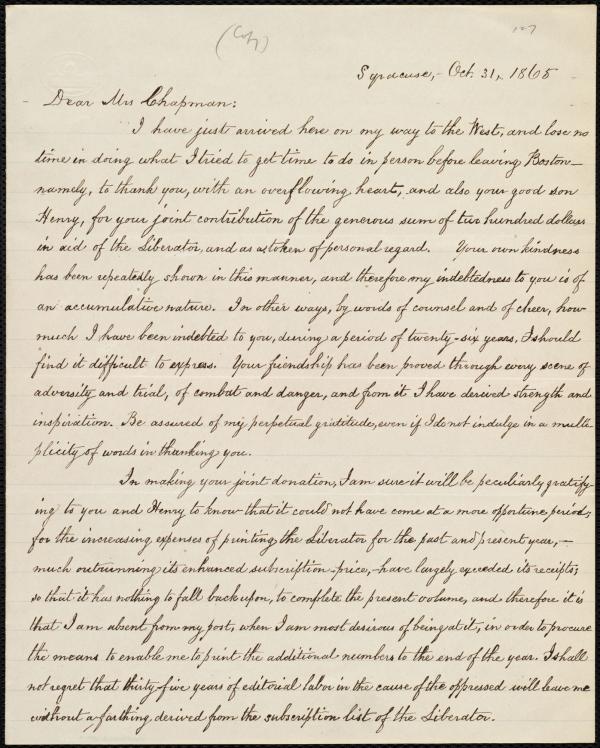 (Copy)
127
Syracuse, Oct. 31, 1865
Dear Mrs Chapman:
I have just arrived here on my way to the West, and lose no
time in doing what I tried to get time to do in person before leaving Boston—
namely, to thank you, with an overflowing heart, and also your good son
Henry, for your joint contribution of the generous sum of two hundred dollars
in aid of the Liberator, and as a token of personal regard. Your own kindness
has been repeatedly shown in this manner, and therefore my indebtedness to you is of
an accumulative nature. In other ways, by words of counsel and of cheer, how
much I have been indebted to you, during a period of twenty-six years, I should
find it difficult to express. Your friendship has been proved through every scene of
adversity and trial, of combat and danger, and from it I have derived strength and
inspiration. Be assured of my perpetual gratitude, even if I do not indulge in a multi-
plicity of words in thanking you.
In making your joint donation, I am sure it will be peculiarly gratify-
ing to you and Henry to know that it could not have come at a more opportune period;
for the increasing expenses of printing the Liberator for the past and present year,—
much outrunning its enhanced subscription-price,—have largely exceeded its receipts;
so that it has nothing to fall back upon, to complete the present volume, and therefore it is
that I am absent from my post, when I am most desirous of being at it, in order to procure
the means to enable me to print the additional numbers to the end of the year. I shall
not regret that thirty-five years of editorial labor in the cause of the oppressed will leave me
without a farthing, derived from the subscription list of the Liberator.